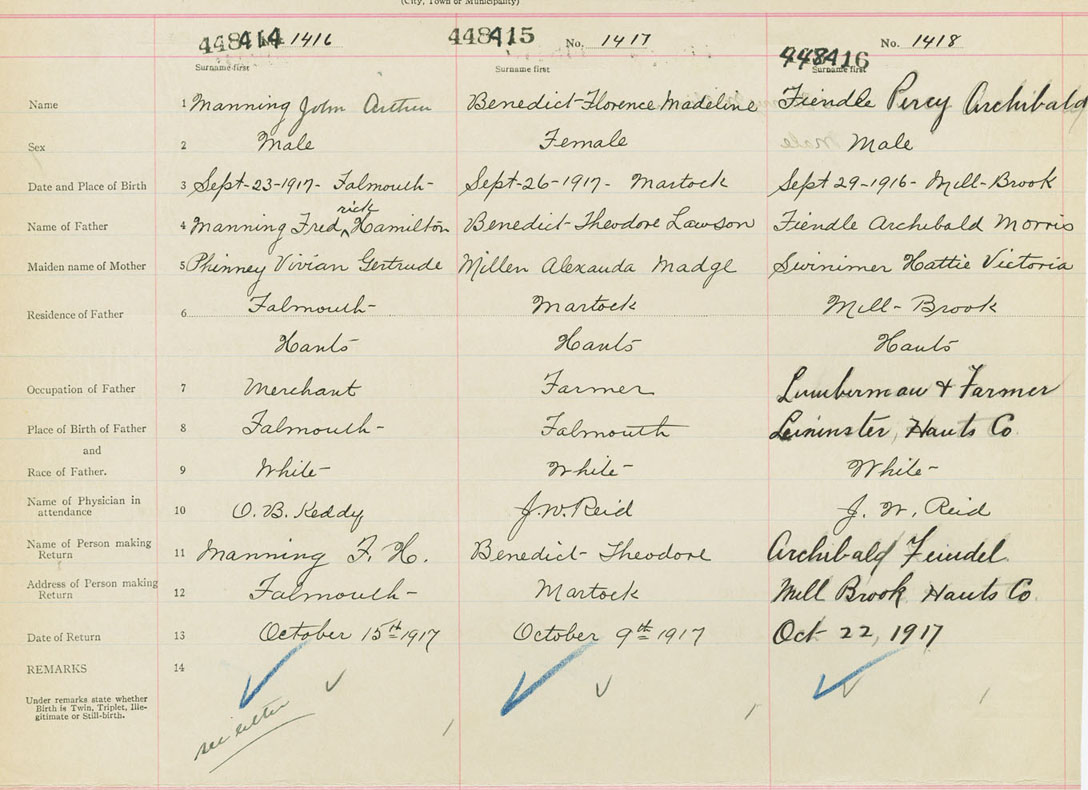 (City, Town or Municipality)
448414 1416 448415 No. 1417 448416 No. 1418
Surname first Surname first Surname first
Name 1 Manning John Arthur Benedict Florence Madeline Fiendle Percy Archibald
Sex 2 Male Female Male
Date and Place of Birth 3 Sept-23-1917- Falmouth- Sept-26-1917- Martock Sept 29-1916- Mill-Brook
rick
Name of Father 4 Manning Fred Hamilton Benedict Theodore Lawson Fiendle Archibald Morris
Maiden name of Mother 5 Phinney Vivian Gertrude Millen Alexauda Madge Swinimer Hattie Victoria
Residence of Father 6 Falmouth- Martock Mill-Brook
Hants Hants Hants
Occupation of Father 7 Merchant Farmer Lumberman & Farmer
Place of Birth of Father 8 Falmouth- Falmouth Leminster, Hants Co.
and
Race of Father. 9 White- White- White-
Name of Physician in
attendance 10 O. B. Keddy J.W. Reid J. W. Reid
Name of Person making
Return 11 Manning F. H. Benedict- Theodore Archibald Feindel
Address of Person making
Return 12 Falmouth- Martock Mill Brook Hants Co.
Date of Return 13 October 15th 1917 October 9th 1917 Oct 22, 1917
REMARKS 14
Under remarks state whether
Birth is Twin, Triplet, Ille-
gitimate or Still-birth.
see letter